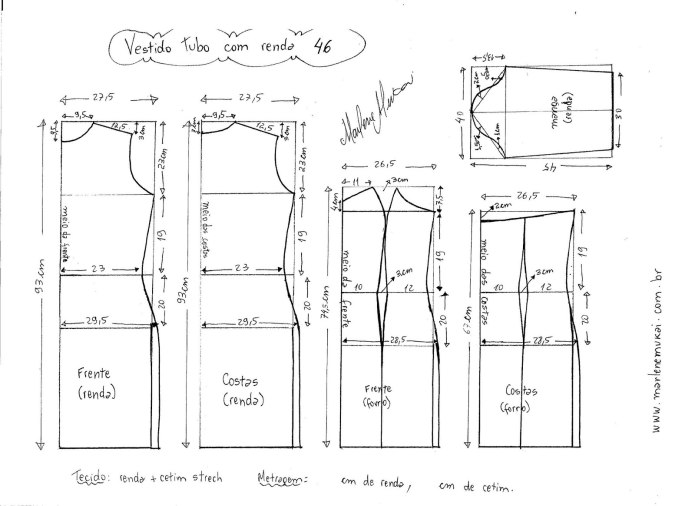 Vestido tubo com renda 46
27,5
9,5
12,5
3cm
23cm
meio da frente
19
93cm
23
20
29,5
Frente
(renda)
27,5
9,5
12,5
23cm
meio das costas
19
93cm
23
20
29,5
Costas
(renda)
Marlene Mukai
26,5
11
3cm
4cm
7,5
19
meio da frente
3cm
10
12
20
74,5cm
28,5
Frente
(forro)
40
30
45
manga
(renda)
26,5
2cm
19
meio das costas
3cm
10
12
20
67cm
28,5
Costas
(forro)
www.marlenemukai.com.br
Tecido: renda + cetim strech Metragem: cm de renda, cm de cetim.